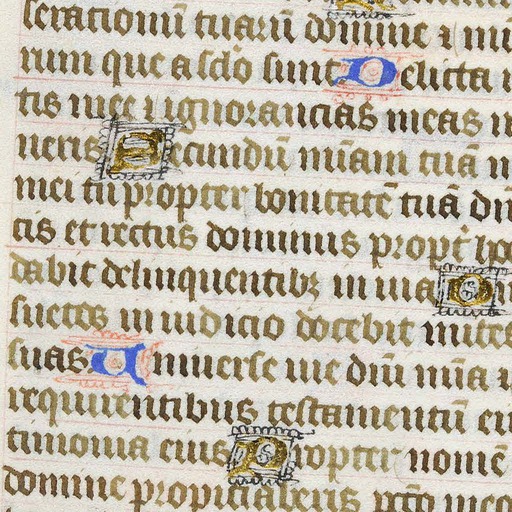 serationū tuarū domine ⁊ mi
rum que a sclo sunt Delicta
tis mee ⁊ ignorancias meas
neris Secundū mīam tuā
mei tu propter bonitatē tuā
cis et rectus dominus propt̄ ho
dabit delinquentibꝫ in uia
suetos in iudicio docebit mites
suas Uniuerse uie dn̄i mīa ⁊
requirentibus testamentū ei
timonia eius Propter nomē
domine propiciaberis